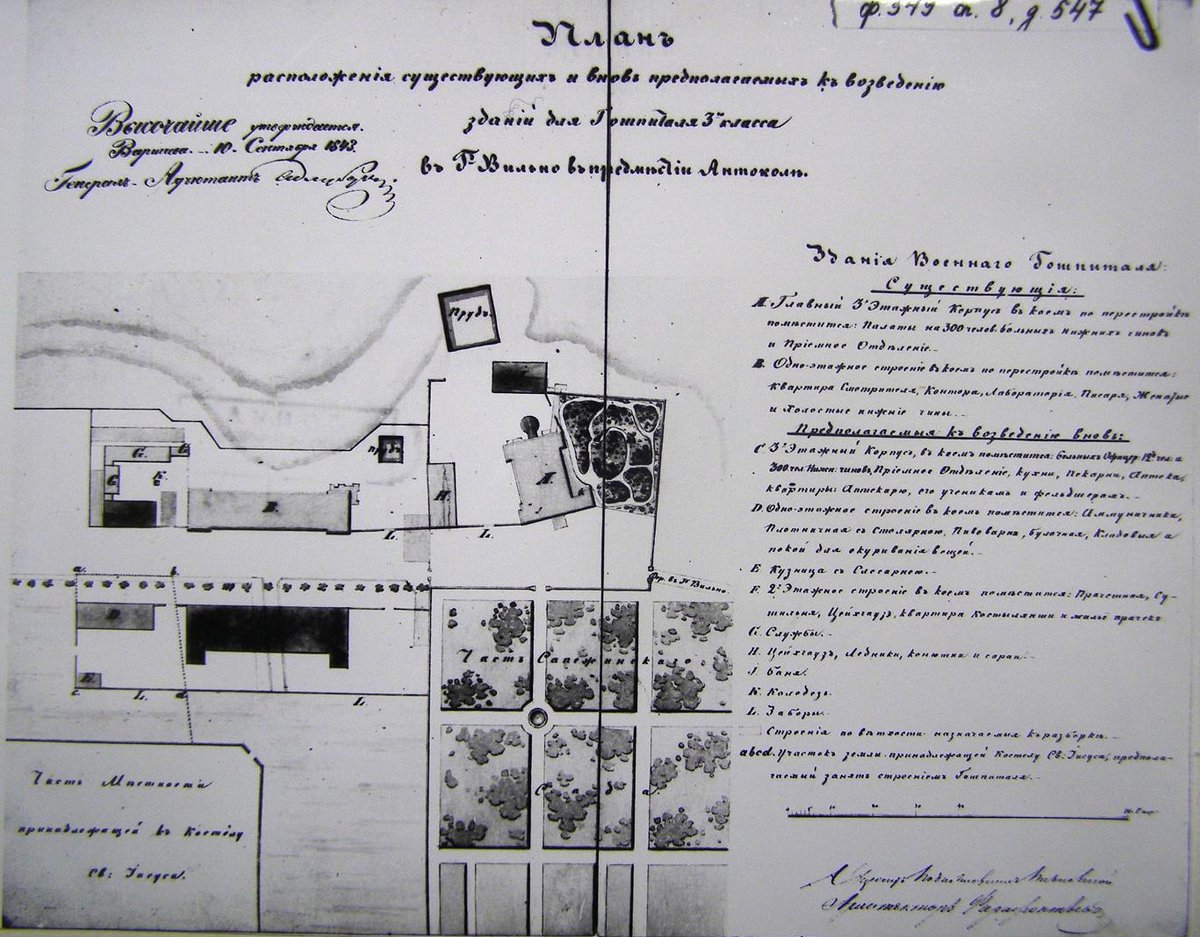 ф. 349 оп. 8, д. 547
Планъ
расположенія существующихъ и вновь предполагаемыхъ къ возведенію
зданій для Гошпиталя 3го класса
въ Гѣ Вильно въ предмѣстіи Антоколѣ.
Высочайше утверждается.
Варшава. 10. Сентября 1843.
Генералъ-Адъютантъ
Зданія Военнаго Гошпиталя:
Существующія:
A. Главный 3х Этажный Корпусъ въ коемъ по перестройкѣ
помѣстится: Палаты на 300 челов. больныхъ нижнихъ чиновъ
и Пріемное Отдѣленіе.
B. Одно-этажное строеніе въ коемъ по перестройкѣ помѣстится:
квартира Смотрителя, Контора, Лабораторія, Писаря, Женатые
и холостые нижніе чины.
Предполагаемыя къ возведенію вновь:
C 3х Этажный Корпусъ, въ коемъ помѣстится: больныхъ Офицер. 12ть чел. и
300 чел. Нижн. чиновъ, Пріемное Отдѣленіе, кухни, Пекарни, Аптека,
квартиры: Аптекарю, его ученикамъ и фельдшерамъ.
D. Одно-этажное строеніе въ коемъ помѣстится: Аммуничника,
Плотничная съ Столярною, Пивоварня, булочная, Кладовыя и
покой для окуриванія вещей.
E Кузница съ Слесарнею.
F. 2х Этажное строеніе въ коемъ помѣстится: Прачешная, Су-
шильня, Цейхгаузъ, квартира Костелянши и жилье прачекъ
G. Службы.
H. Цейхгаузъ, Ледники, конюшни и сараи.
J. Баня.
K. Колодезь.
L. Заборы.
Строенія по вѣтхости назначаемыя къ разборкѣ.
abcd. Участокъ земли принадлежащей Костелу Св. Іисуса, предпола-
гаемый занять строеніемъ Гошпиталя.
Прудъ.
Прудъ
G.
G
E.
B.
H
A.
L.
L.
дор. въ г. Вильно.
a.
b.
D
E.
c.
L.
d.
L.
Часть Сапежинскаго
Сада
Часть Мѣстности
принадлежащей къ Костелу
Св: Іисуса.